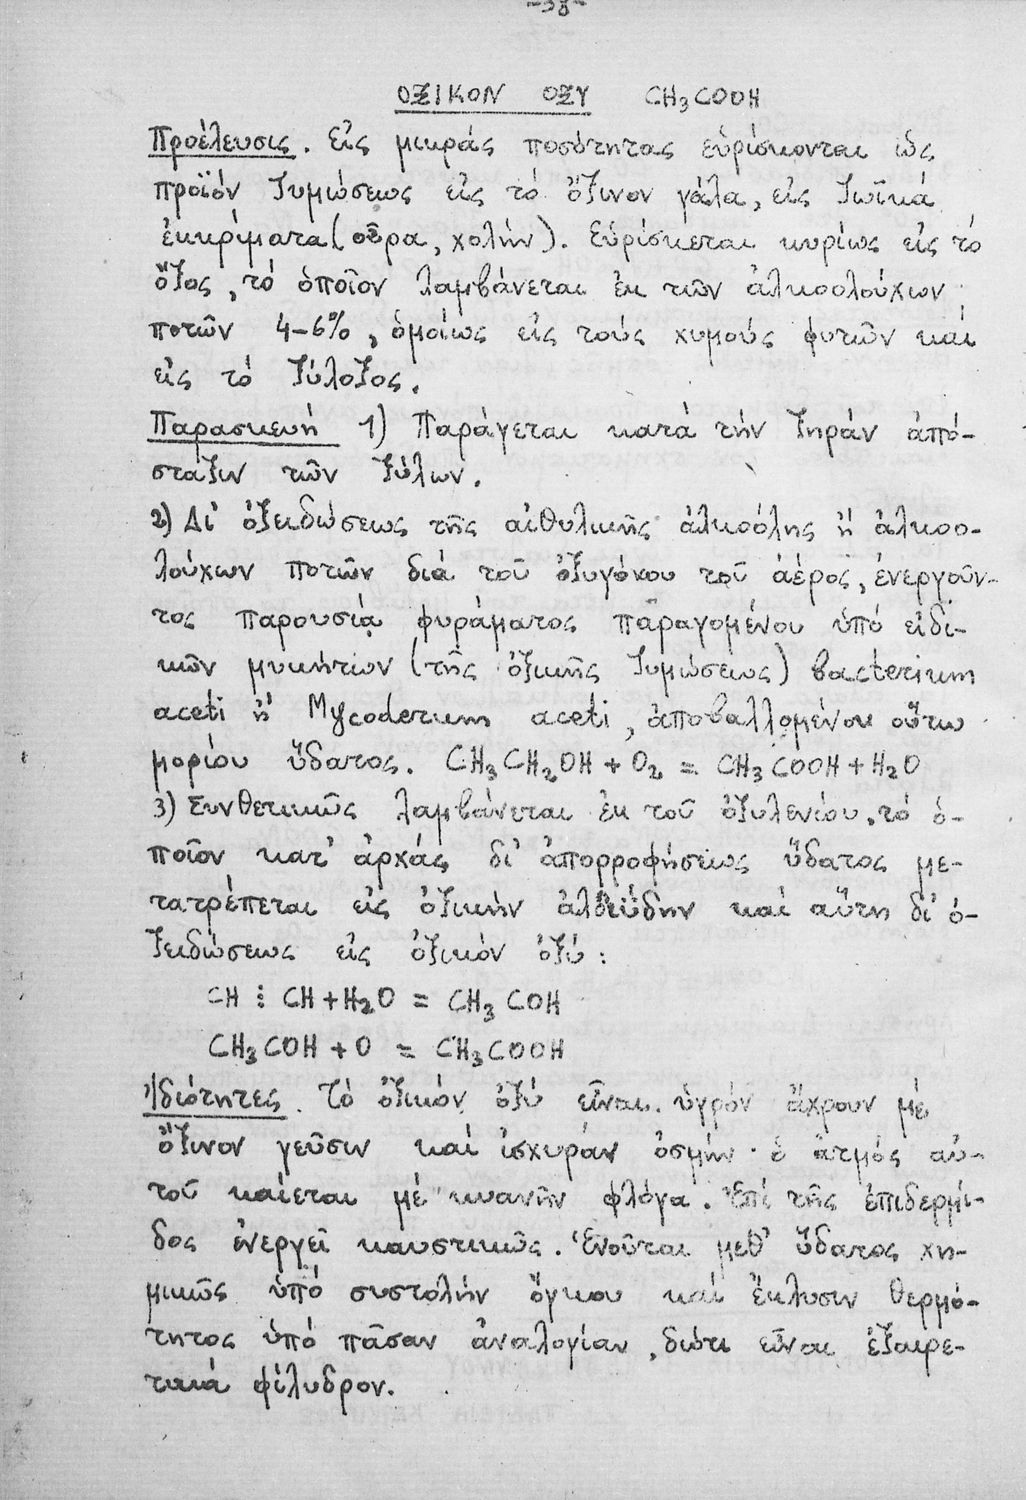 -38-
ΟΞΙΚΟΝ ΟΞΥ CH₃COOH
Προέλευσις. Εἰς μικράς ποσότητας εὑρίσκονται ὡς
προϊόν ζυμώσεως εἰς τό ὄξινον γάλα, εἰς ζωϊκά
ἐκκρίματα (οὖρα, χολήν). Εὑρίσκεται κυρίως εἰς τό
ὄξος, τό ὁποῖον λαμβάνεται ἐκ τῶν ἀλκοολούχων
ποτῶν 4-6%, ὁμοίως εἰς τούς χυμούς φυτῶν καί
εἰς τό ξύλοξος.
Παρασκευή 1) Παράγεται κατά τήν ξηράν ἀπό-
σταξιν τῶν ξύλων.
2) Δι' ὀξειδώσεως τῆς αἰθυλικῆς ἀλκοόλης ἤ ἀλκοο-
λούχων ποτῶν διά τοῦ ὀξυγόνου τοῦ ἀέρος, ἐνεργοῦν-
τος παρουσίᾳ φυράματος παραγομένου ὑπό εἰδι-
κῶν μυκήτων (τῆς ὀξικῆς ζυμώσεως) bacterium
aceti ἤ Mycoderum aceti, ἀποβαλλομένου οὕτω
μορίου ὕδατος. CH₃CH₂OH + O₂ = CH₃COOH + H₂O
3) Συνθετικῶς λαμβάνεται ἐκ τοῦ ὀξυλενίου, τό ὁ-
ποῖον κατ' ἀρχάς δι' ἀπορροφήσεως ὕδατος με-
τατρέπεται εἰς ὀξικήν ἀλδεΰδην καί αὕτη δι' ὀ-
ξειδώσεως εἰς ὀξικόν ὀξύ:
CH ⋮ CH + H₂O = CH₃COH
CH₃COH + O = CH₃COOH
Ἰδιότητες. Τό ὀξικόν ὀξύ εἶναι ὑγρόν ἄχρουν μέ
ὄξινον γεῦσιν καί ἰσχυράν ὀσμήν· ὁ ἀτμός αὐ-
τοῦ καίεται μέ κυανῆν φλόγα. Ἐπί τῆς ἐπιδερμί-
δος ἐνεργεῖ καυστικῶς. Ἑνοῦται μεθ' ὕδατος χη-
μικῶς ὑπό συστολήν ὄγκου καί ἔκλυσιν θερμό-
τητος ὑπό πᾶσαν ἀναλογίαν, διότι εἶναι ἐξαιρε-
τικά φίλυδρον.